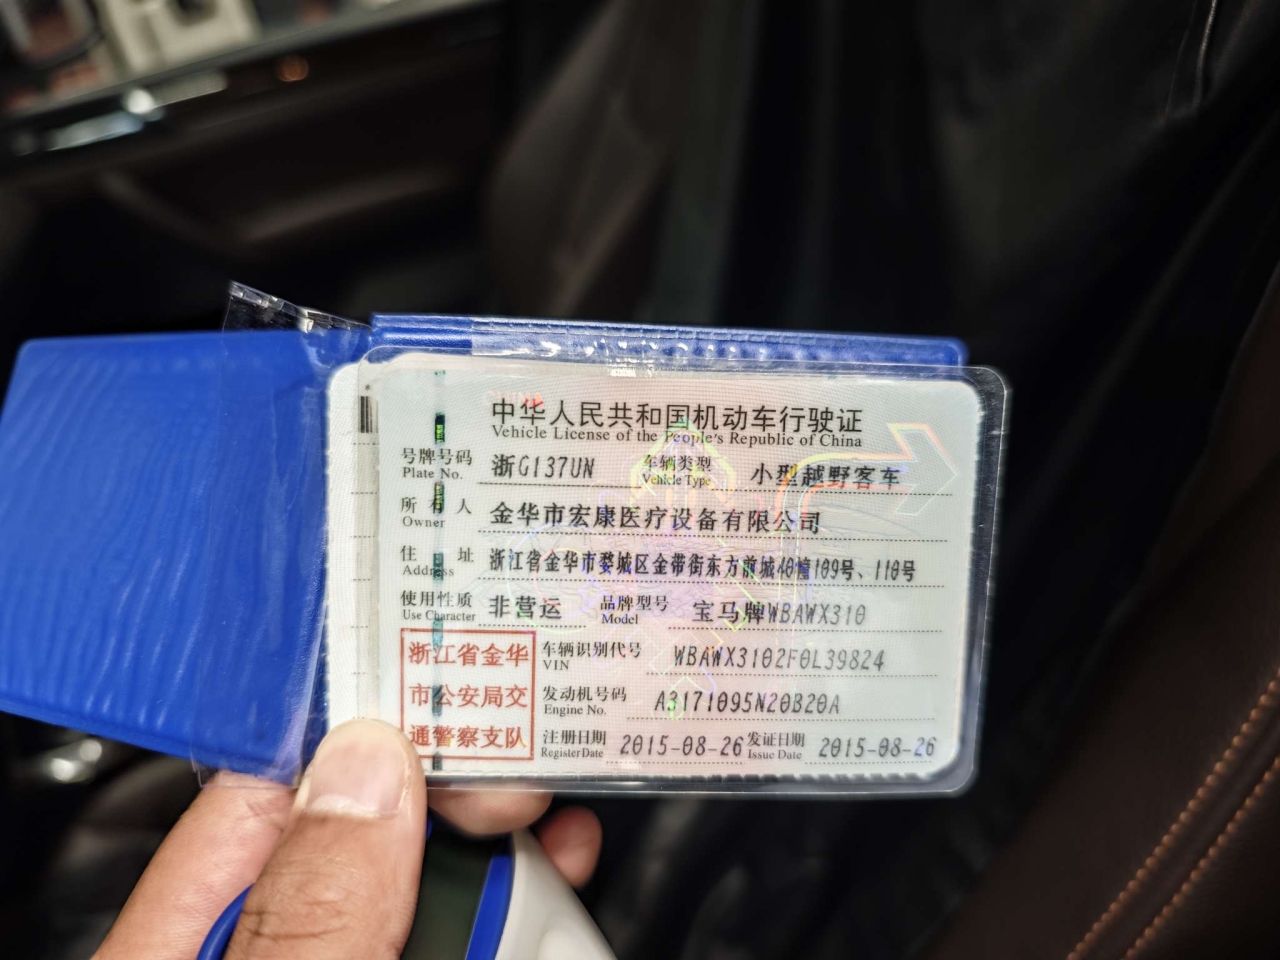 中华人民共和国机动车行驶证
Vehicle License of the People's Republic of China
号牌号码 浙G137UN 车辆类型 小型越野客车
Plate No. Vehicle Type
所有人 金华市宏康医疗设备有限公司
Owner
住址 浙江省金华市婺城区金带街东方前城40幢109号、110号
Address
使用性质 非营运 品牌型号 宝马牌WBAWX310
Use Character Model
浙江省金华 车辆识别代号 WBAWX3102F0L39824
VIN
市公安局交 发动机号码 A3171095N20B20A
Engine No.
通警察支队 注册日期 2015-08-26 发证日期 2015-08-26
Register Date Issue Date